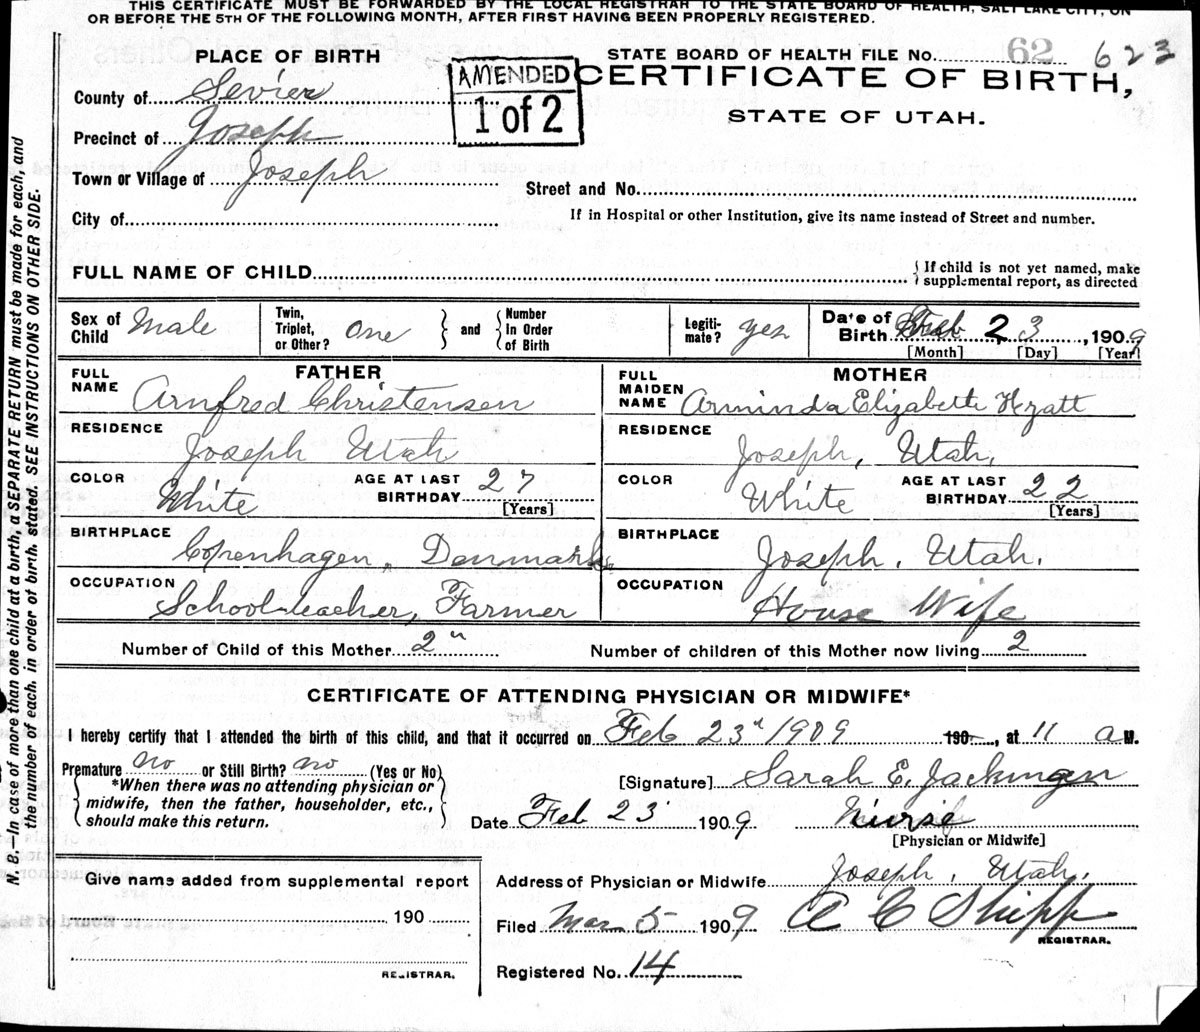 THIS CERTIFICATE MUST BE FORWARDED BY THE LOCAL REGISTRAR TO THE STATE BOARD OF HEALTH, SALT LAKE CITY, ON
OR BEFORE THE 5TH OF THE FOLLOWING MONTH, AFTER FIRST HAVING BEEN PROPERLY REGISTERED.
PLACE OF BIRTH
STATE BOARD OF HEALTH FILE No. 62 623
County of Sevier
AMENDED
1 of 2
CERTIFICATE OF BIRTH,
STATE OF UTAH.
Precinct of Joseph
Town or Village of Joseph
Street and No.
City of
If in Hospital or other Institution, give its name instead of Street and number.
FULL NAME OF CHILD
{ If child is not yet named, make
supplemental report, as directed
Sex of Child Male
Twin, Triplet, or Other? One } and { Number In Order of Birth
Legiti-mate? yes
Date of Birth Feb 23, 1909
[Month] [Day] [Year]
FATHER
FULL NAME Arnfred Christensen
MOTHER
FULL MAIDEN NAME Arminda Elizabeth Hyatt
RESIDENCE Joseph Utah
RESIDENCE Joseph, Utah.
COLOR White
AGE AT LAST BIRTHDAY 27
[Years]
COLOR White
AGE AT LAST BIRTHDAY 22
[Years]
BIRTHPLACE Copenhagen, Denmark
BIRTHPLACE Joseph, Utah.
OCCUPATION School-teacher, Farmer
OCCUPATION House Wife
Number of Child of this Mother 2
Number of children of this Mother now living 2
CERTIFICATE OF ATTENDING PHYSICIAN OR MIDWIFE*
I hereby certify that I attended the birth of this child, and that it occurred on Feb 23 1909 190 , at 11 a M.
Premature no or Still Birth? no (Yes or No)
{ *When there was no attending physician or
midwife, then the father, householder, etc.,
should make this return. }
[Signature] Sarah E.
Date Feb 23 1909
Nurse
[Physician or Midwife]
Give name added from supplemental report
190
REGISTRAR.
Address of Physician or Midwife Joseph, Utah.
Filed Mar 5 1909 A C Shipp
REGISTRAR.
Registered No. 14
N. B.—In case of more than one child at a birth, a SEPARATE RETURN must be made for each, and
the number of each, in order of birth, stated. SEE INSTRUCTIONS ON OTHER SIDE.